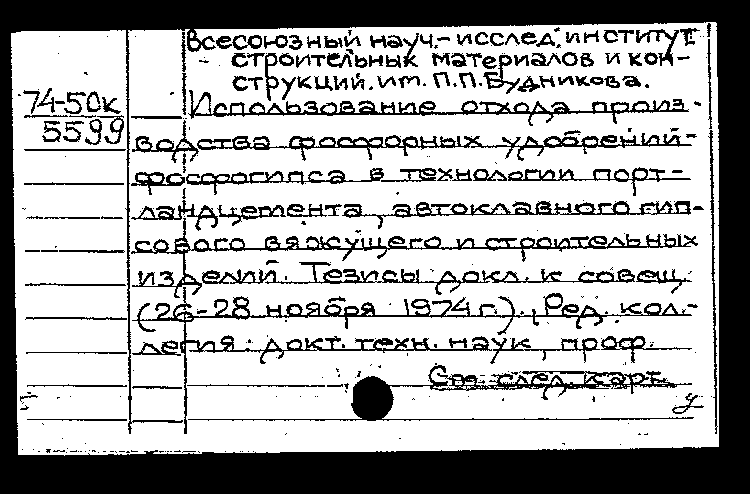 Всесоюзный науч.-исслед. институт
строительных материалов и кон-
струкций. им. П.П.Будникова.
74-50к
5599
Использование отхода произ-
водства фосфорных удобрений-
фосфогипса в технологии порт-
ландцемента, автоклавного гип-
сового вяжущего и строительных
изделий. Тезисы докл. к совещ.
(26-28 ноября 1974 г.)., Ред. кол-
легия: докт. техн. наук, проф.
См. след. карт.
у